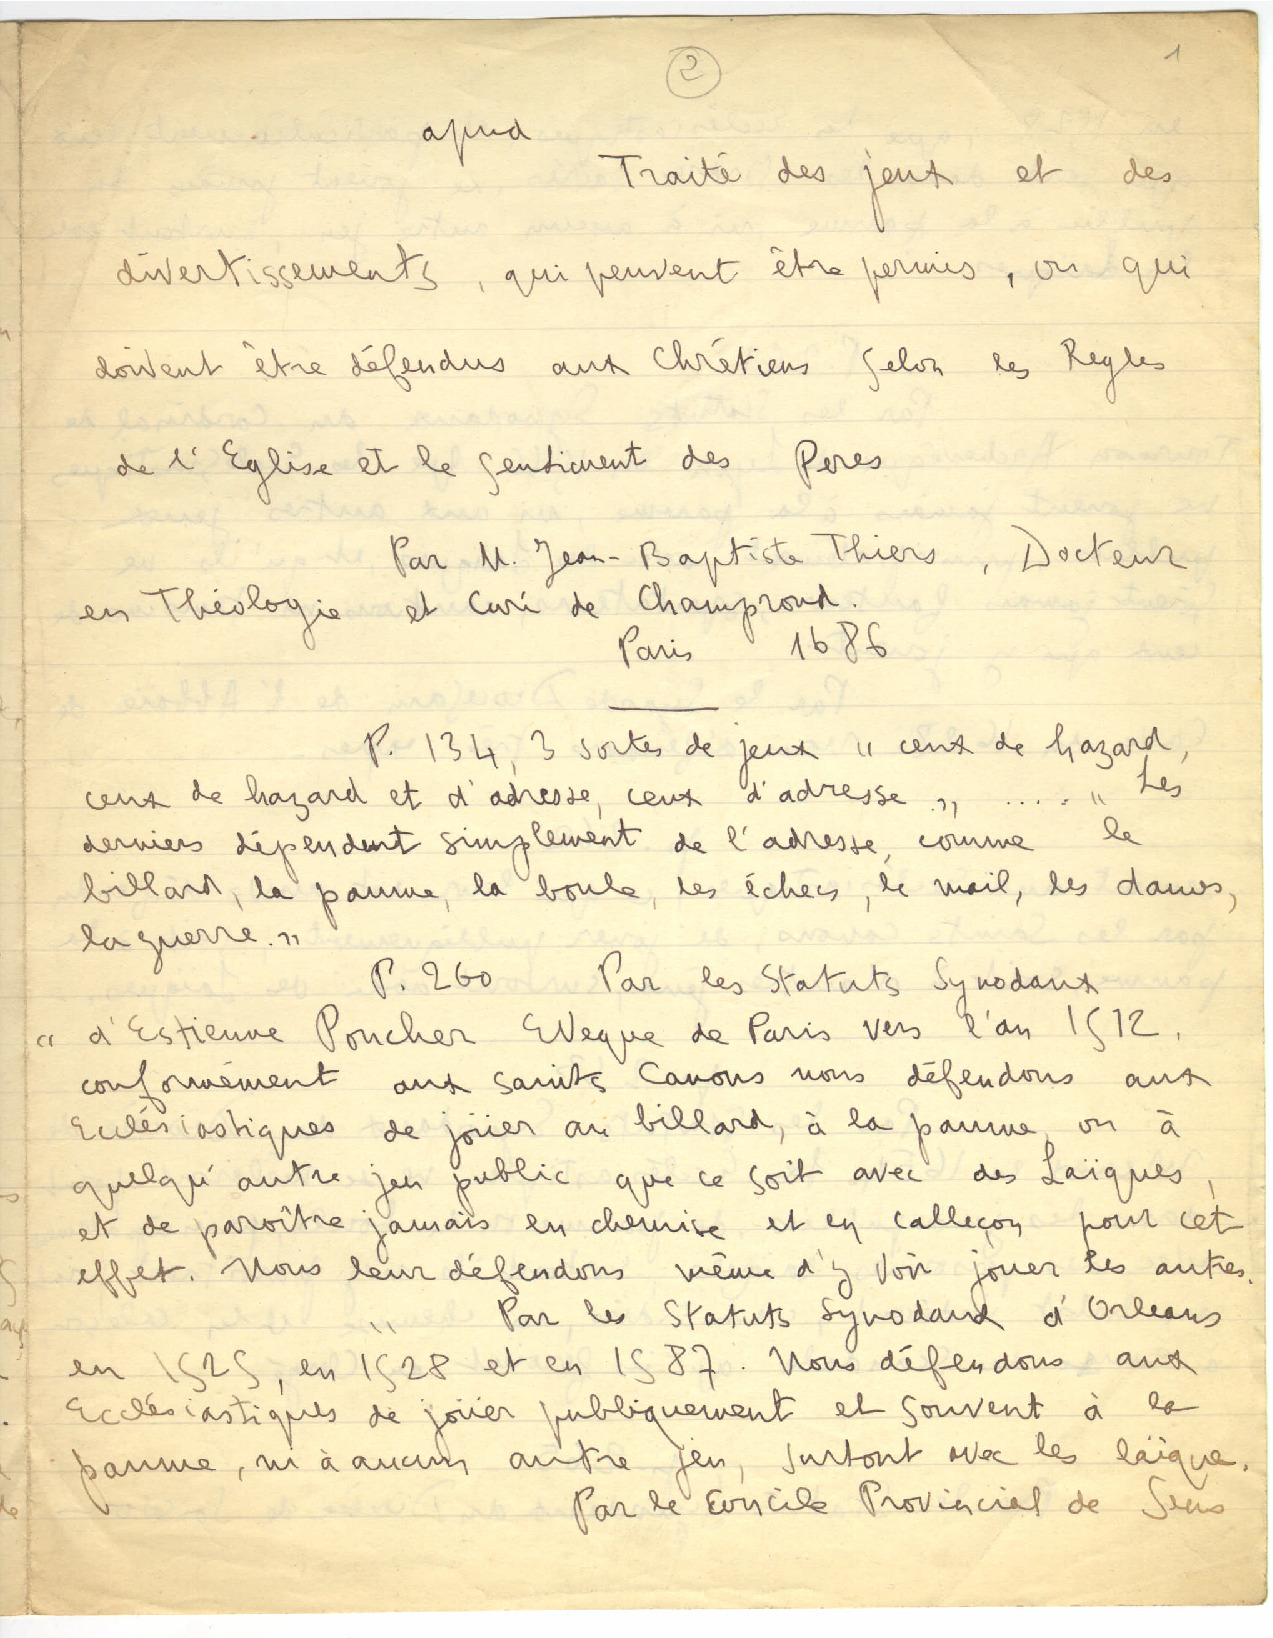 2
1
apud
Traité des jeux et des
divertissements, qui peuvent être permis, ou qui
doivent être défendus aux Chrétiens selon les Regles
de l'Eglise et le sentiment des Peres
Par M. Jean-Baptiste Thiers, Docteur
en Théologie et Curé de Champrond.
Paris 1686
P. 134, 3 sortes de jeux " ceux de hazard,
ceux de hazard et d'adresse, ceux d'adresse ", ..... " Les
derniers dépendent simplement de l'adresse, comme le
billard, la paume, la boule, les échecs, le mail, les dames,
la guerre."
P. 260 Par les Statuts Synodaux
" d'Estienne Poncher EVeque de Paris vers l'an 1512,
conformément aux saints Canons nous défendons aux
Ecclésiastiques de joüer au billard, à la paume, ou à
quelqu'autre jeu public que ce soit avec des Laïques,
et de paroître jamais en chemise et en calleçon pour cet
effet. Nous leur défendons même d'y voir jouer les autres.
" Par les Statuts Synodaux d'Orleans
en 1525, en 1528 et en 1587. Nous défendons aux
Ecclésiastiques de joüer publiquement et souvent à la
paume, ni à aucun autre jeu, surtout avec les laïque.
Par le Concile Provincial de Sens